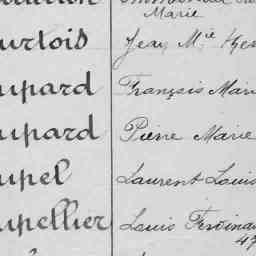 Marie
urtois Jean M^ie
upard François Marie
upard Pierre Marie
upel Laurent Louis
upellier Louis Ferdinan
47